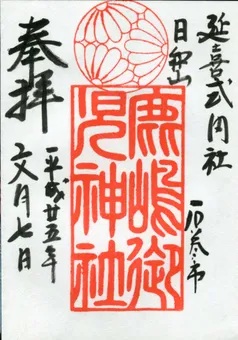 延喜式内社
日和山
石巻市
鹿島御
児神社
奉拝
平成廿五年
文月七日